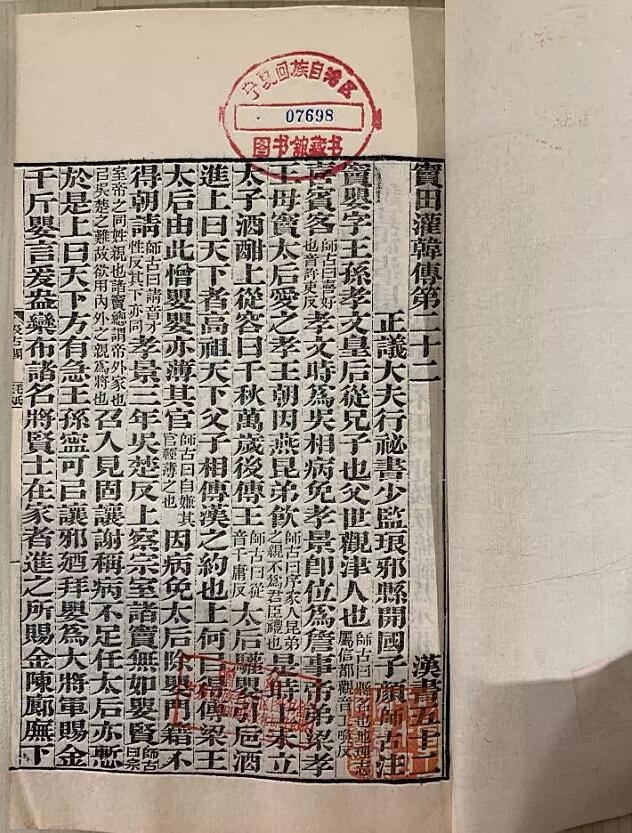 宁夏回族自治区
07698
图书馆藏书
竇田灌韓傳第二十二 漢書五十二
正議大夫行祕書少監琅邪縣開國子顏師古注
竇嬰字王孫孝文皇后從兄子也父世觀津人也師古曰縣名也地理志屬信都觀音工喚反
喜賓客師古曰喜好也音許吏反孝文時為吳相病免孝景卽位為詹事帝弟梁孝
王母竇太后愛之孝王朝因燕昆弟飲師古曰序家人昆弟之親不為君臣禮也是時上未立
太子酒酣上從容曰千秋萬歲後傳王師古曰從音千庸反太后驩嬰引卮酒
進上曰天下者高祖天下父子相傳漢之約也上何㠯得傳梁王
太后由此憎嬰嬰亦薄其官師古曰自嫌其官輕薄之也因病免太后除嬰門籍不
得朝請師古曰請音才性反其下亦同孝景三年吳楚反上察宗室諸竇無如嬰賢師古曰宗
室帝之同姓親也諸竇總謂帝外家也㠯吳楚之難故欲用內外之親為將也召入見固讓謝稱病不足任太后亦慙
於是上曰天下方有急王孫寧可㠯讓邪廼拜嬰為大將軍賜金
千斤嬰言爰盎欒布諸名將賢士在家者進之所賜金陳廊廡下